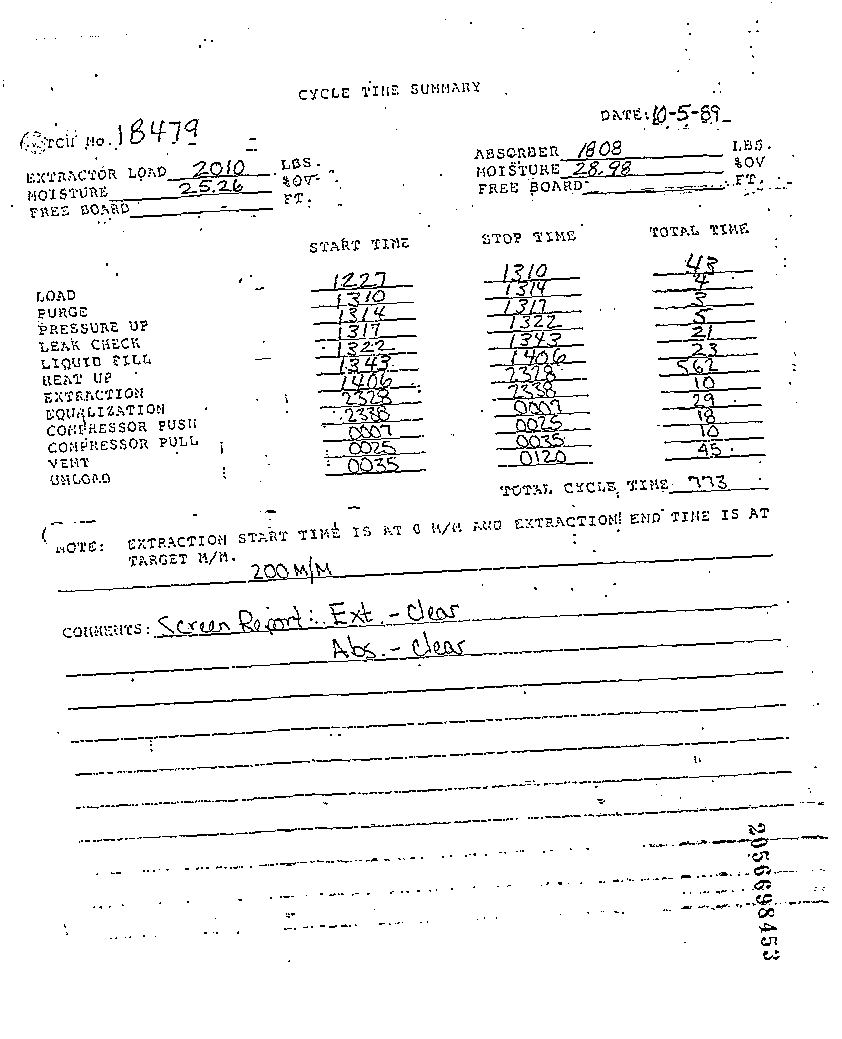 CYCLE TIME SUMMARY
DATE: 10-5-89
BATCH NO. 18479
EXTRACTOR LOAD 2010 LBS.
MOISTURE 25.26 %OV
FREE BOARD - FT.
ABSORBER 1808 LBS.
MOISTURE 28.98 %OV
FREE BOARD FT.
START TIME STOP TIME TOTAL TIME
LOAD 1227 1310 43
PURGE 1310 1314 4
PRESSURE UP 1314 1317 3
LEAK CHECK 1317 1322 5
LIQUID FILL 1322 1343 21
HEAT UP 1343 1406 23
EXTRACTION 1406 2328 562
EQUALIZATION 2328 2338 10
COMPRESSOR PUSH 2338 0007 29
COMPRESSOR PULL 0007 0025 18
VENT 0025 0035 10
UNLOAD 0035 0120 45
TOTAL CYCLE TIME 773
NOTE: EXTRACTION START TIME IS AT 0 M/M AND EXTRACTION END TIME IS AT
TARGET M/M.
200 M/M
COMMENTS: Screen Report: Ext. - Clear
Abs. - Clear
2056698453